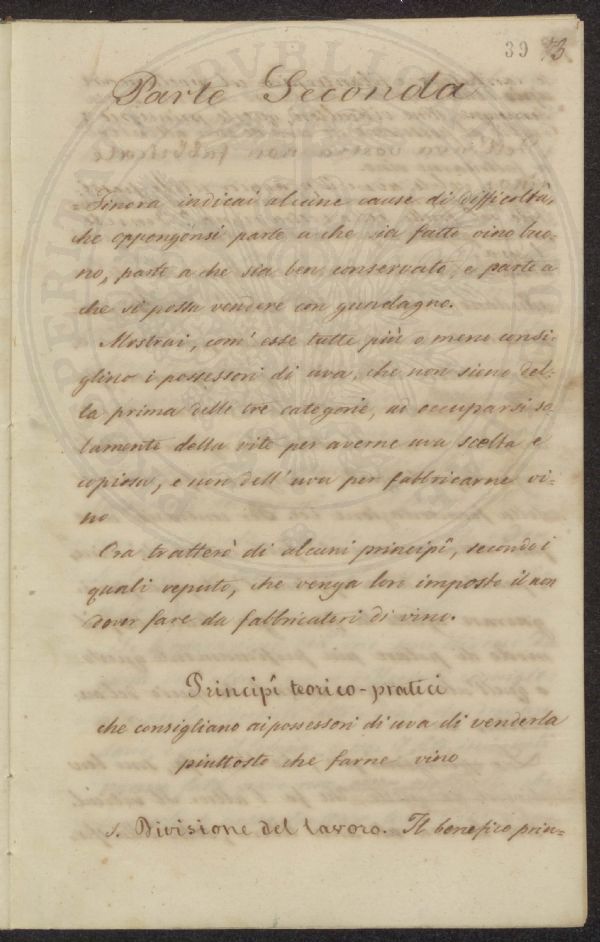 39 73
Parte Seconda
Sinora indicai alcune cause di difficoltà,
che oppongonsi parte a che sia fatto vino buo=
no, parte a che sia ben conservato, e parte a
che si possa vendere con guadagno.
Mostrai, com' esse tutte più o meno consi=
glino i possessori di uva, che non sieno del=
la prima delle tre categorie, ad occuparsi so
lamente della vite per averne uva scelta e
copiosa, e non dell' uva per fabbricarne vi=
no
Ora tratterò di alcuni principî, secondo i
quali reputo, che venga loro imposto il non
dover fare da fabbricatori di vino.
Principî teorico-pratici
che consigliano ai possessori di uva di venderla
piuttosto che farne vino
1. Divisione del lavoro. Il benefico prin=